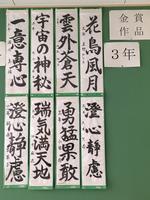 金賞
作品
3年
花鳥風月
雲外蒼天
宇宙の神秘
一意専心
澄心静慮
勇猛果敢
瑞気満天地
澄心静慮